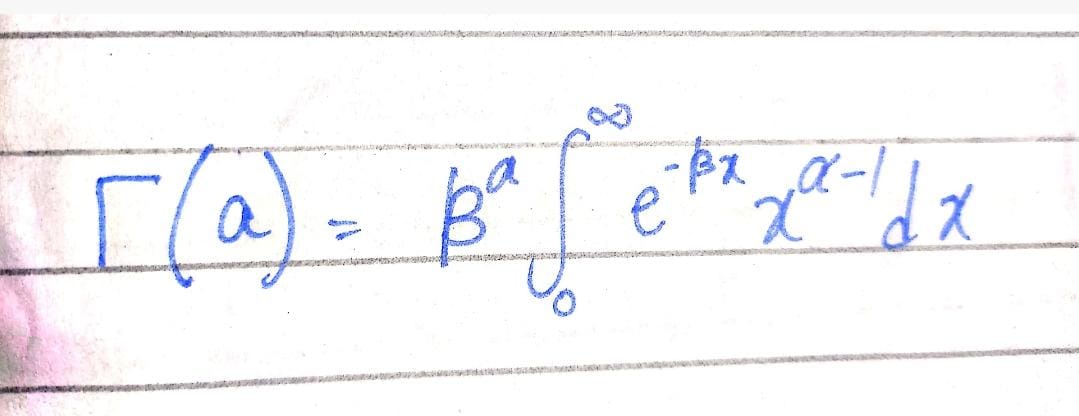 Γ(a) = β^a ∫_0^∞ e^{-βx} x^{a-1} dx